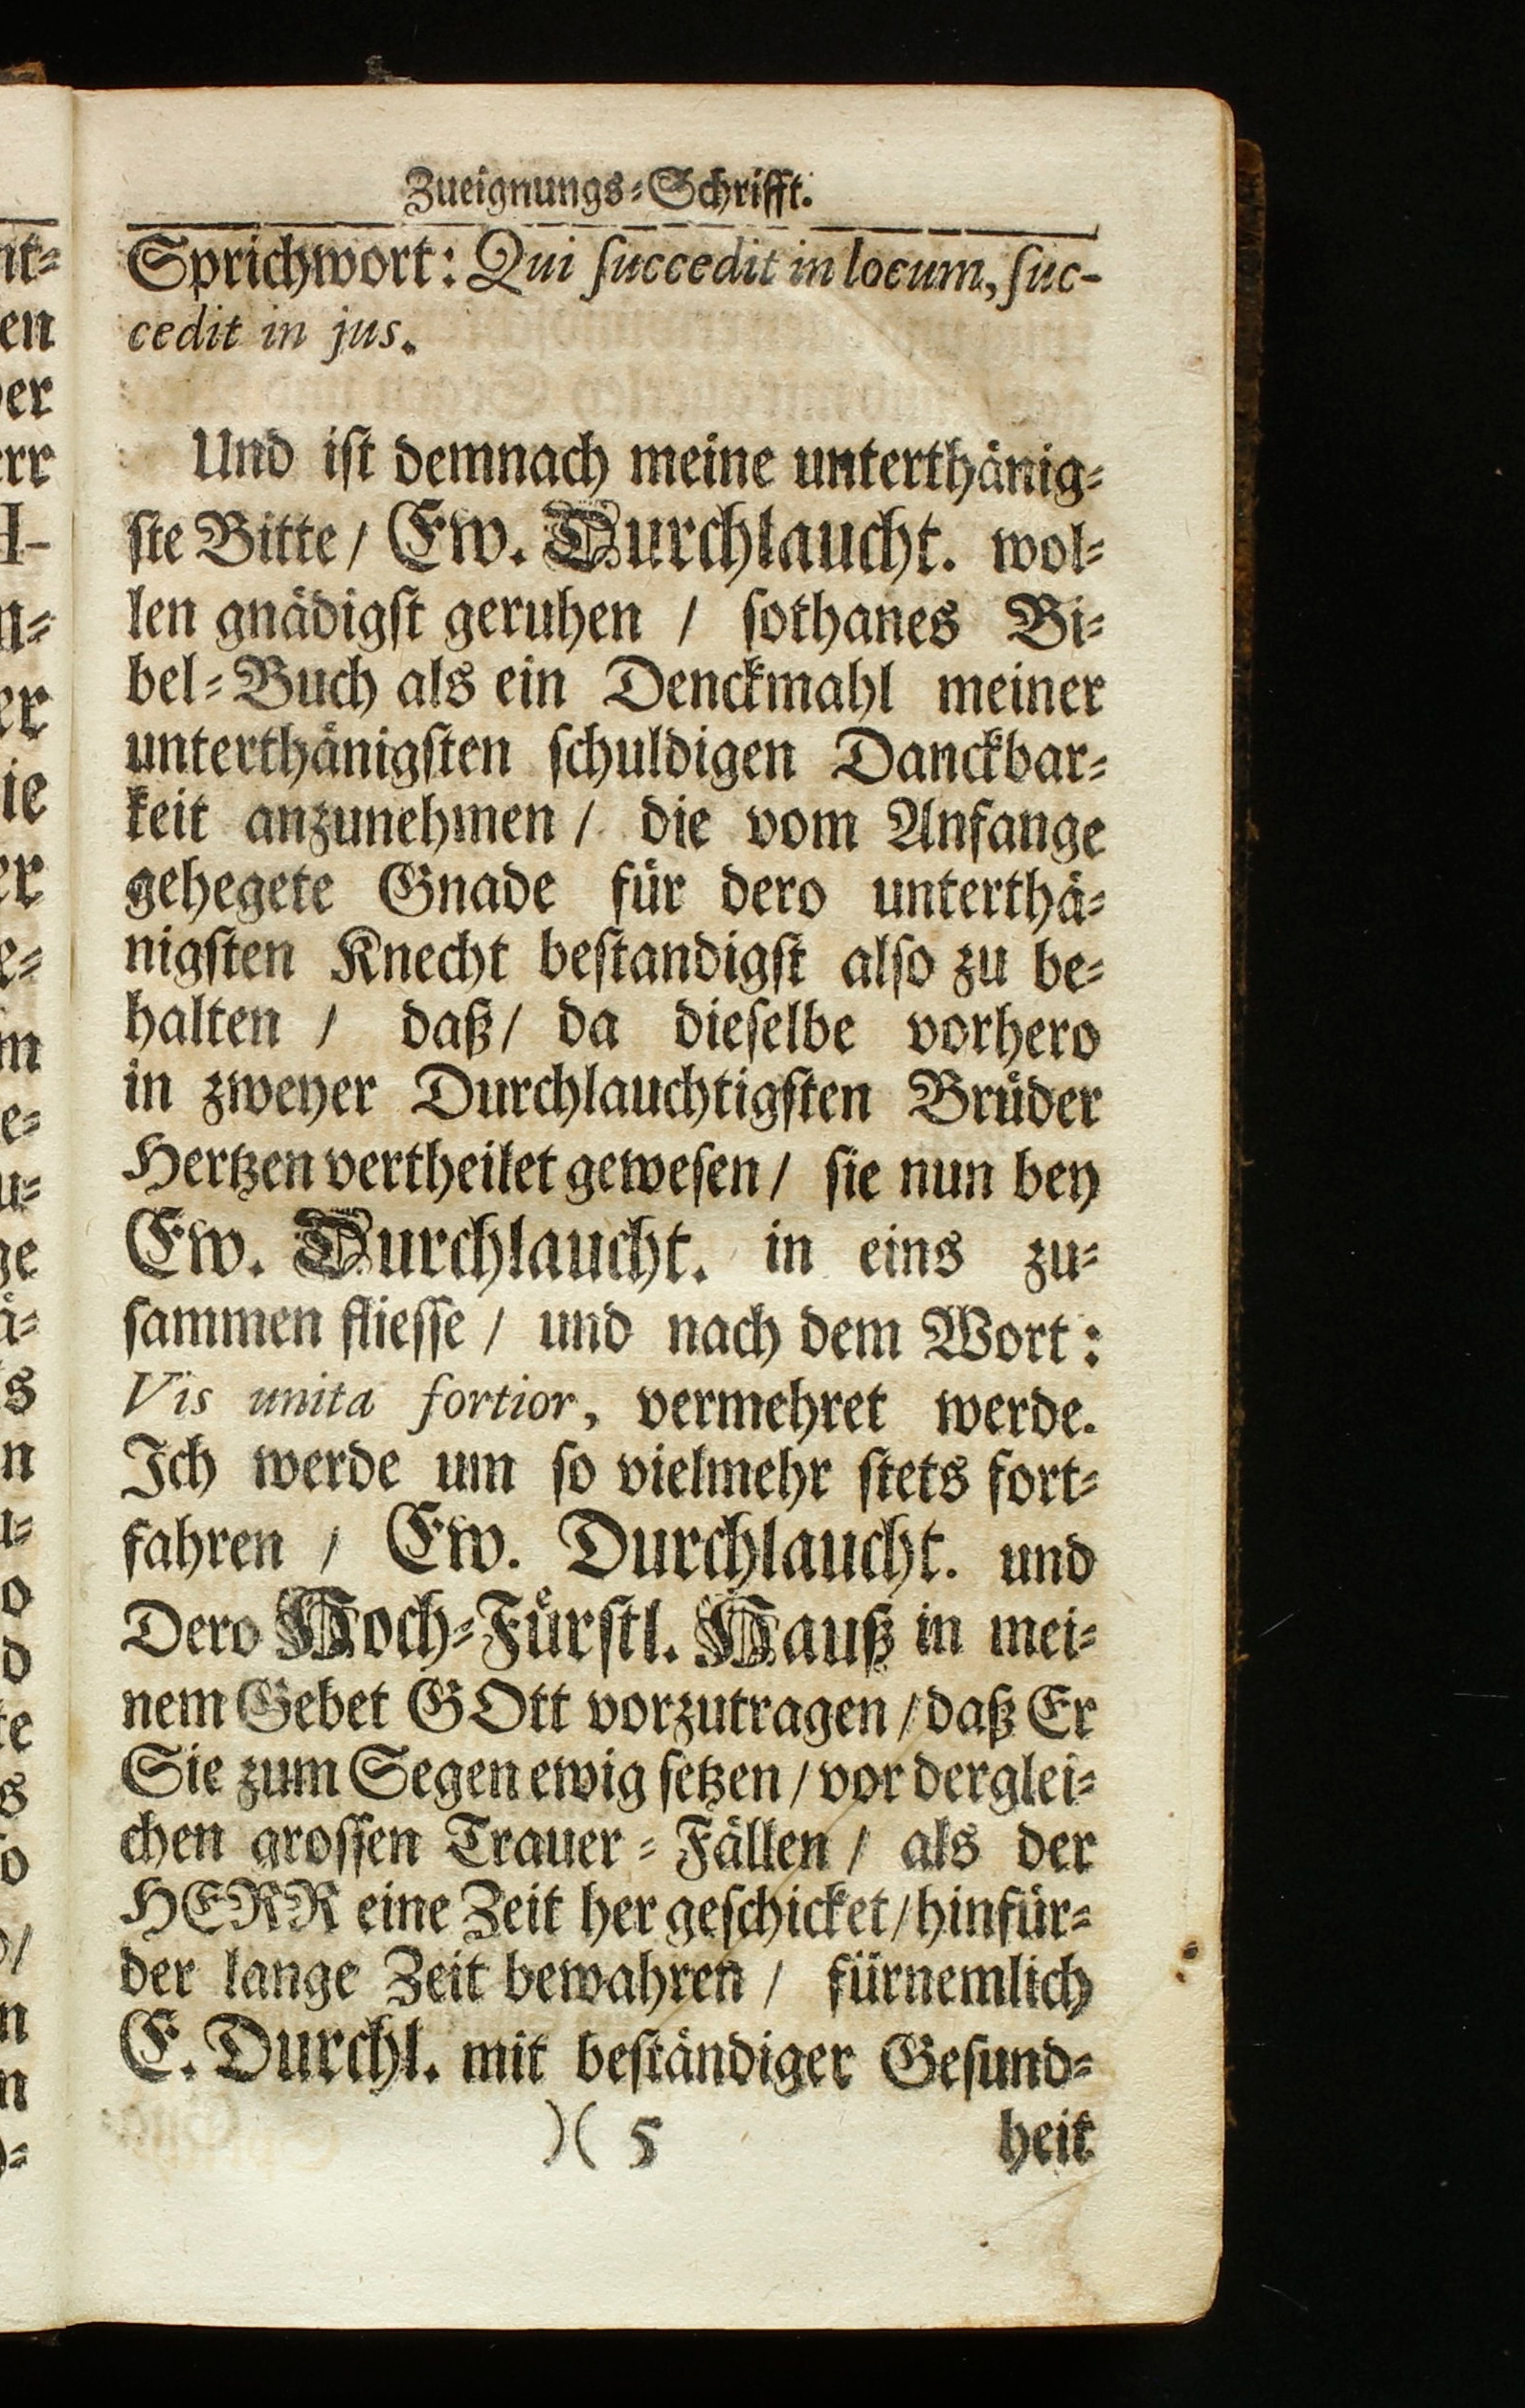 Zueignungs-Schrifft.
Sprichwort: Qui ſuccedit in locum, ſuc-
cedit in jus.
Und iſt demnach meine unterthånig-
ſte Bitte / Ew. Durchlaucht. wol-
len gnådigſt geruhen / ſothanes Bi-
bel-Buch als ein Denckmahl meiner
unterthånigſten ſchuldigen Danckbar-
keit anzunehmen / die vom Anfange
gehegete Gnade für dero unterthå-
nigſten Knecht beſtandigſt alſo zu be-
halten / daß / da dieſelbe vorhero
in zweyer Durchlauchtigſten Brůder
Hertzen vertheilet geweſen / ſie nun bey
Ew. Durchlaucht. in eins zu-
ſammen flieſſe / und nach dem Wort:
Vis unita fortior, vermehret werde.
Ich werde um ſo vielmehr ſtets fort-
fahren / Ew. Durchlaucht. und
Dero Hoch-Fürſtl. Hauß in mei-
nem Gebet GOtt vorzutragen / daß Er
Sie zum Segen ewig ſetzen / vor derglei-
chen groſſen Trauer-Fällen / als der
HERR eine Zeit her geſchicket / hinfür-
der lange Zeit bewahren / fürnemlich
E. Durchl. mit beſtåndiger Geſund-
)( 5 heit